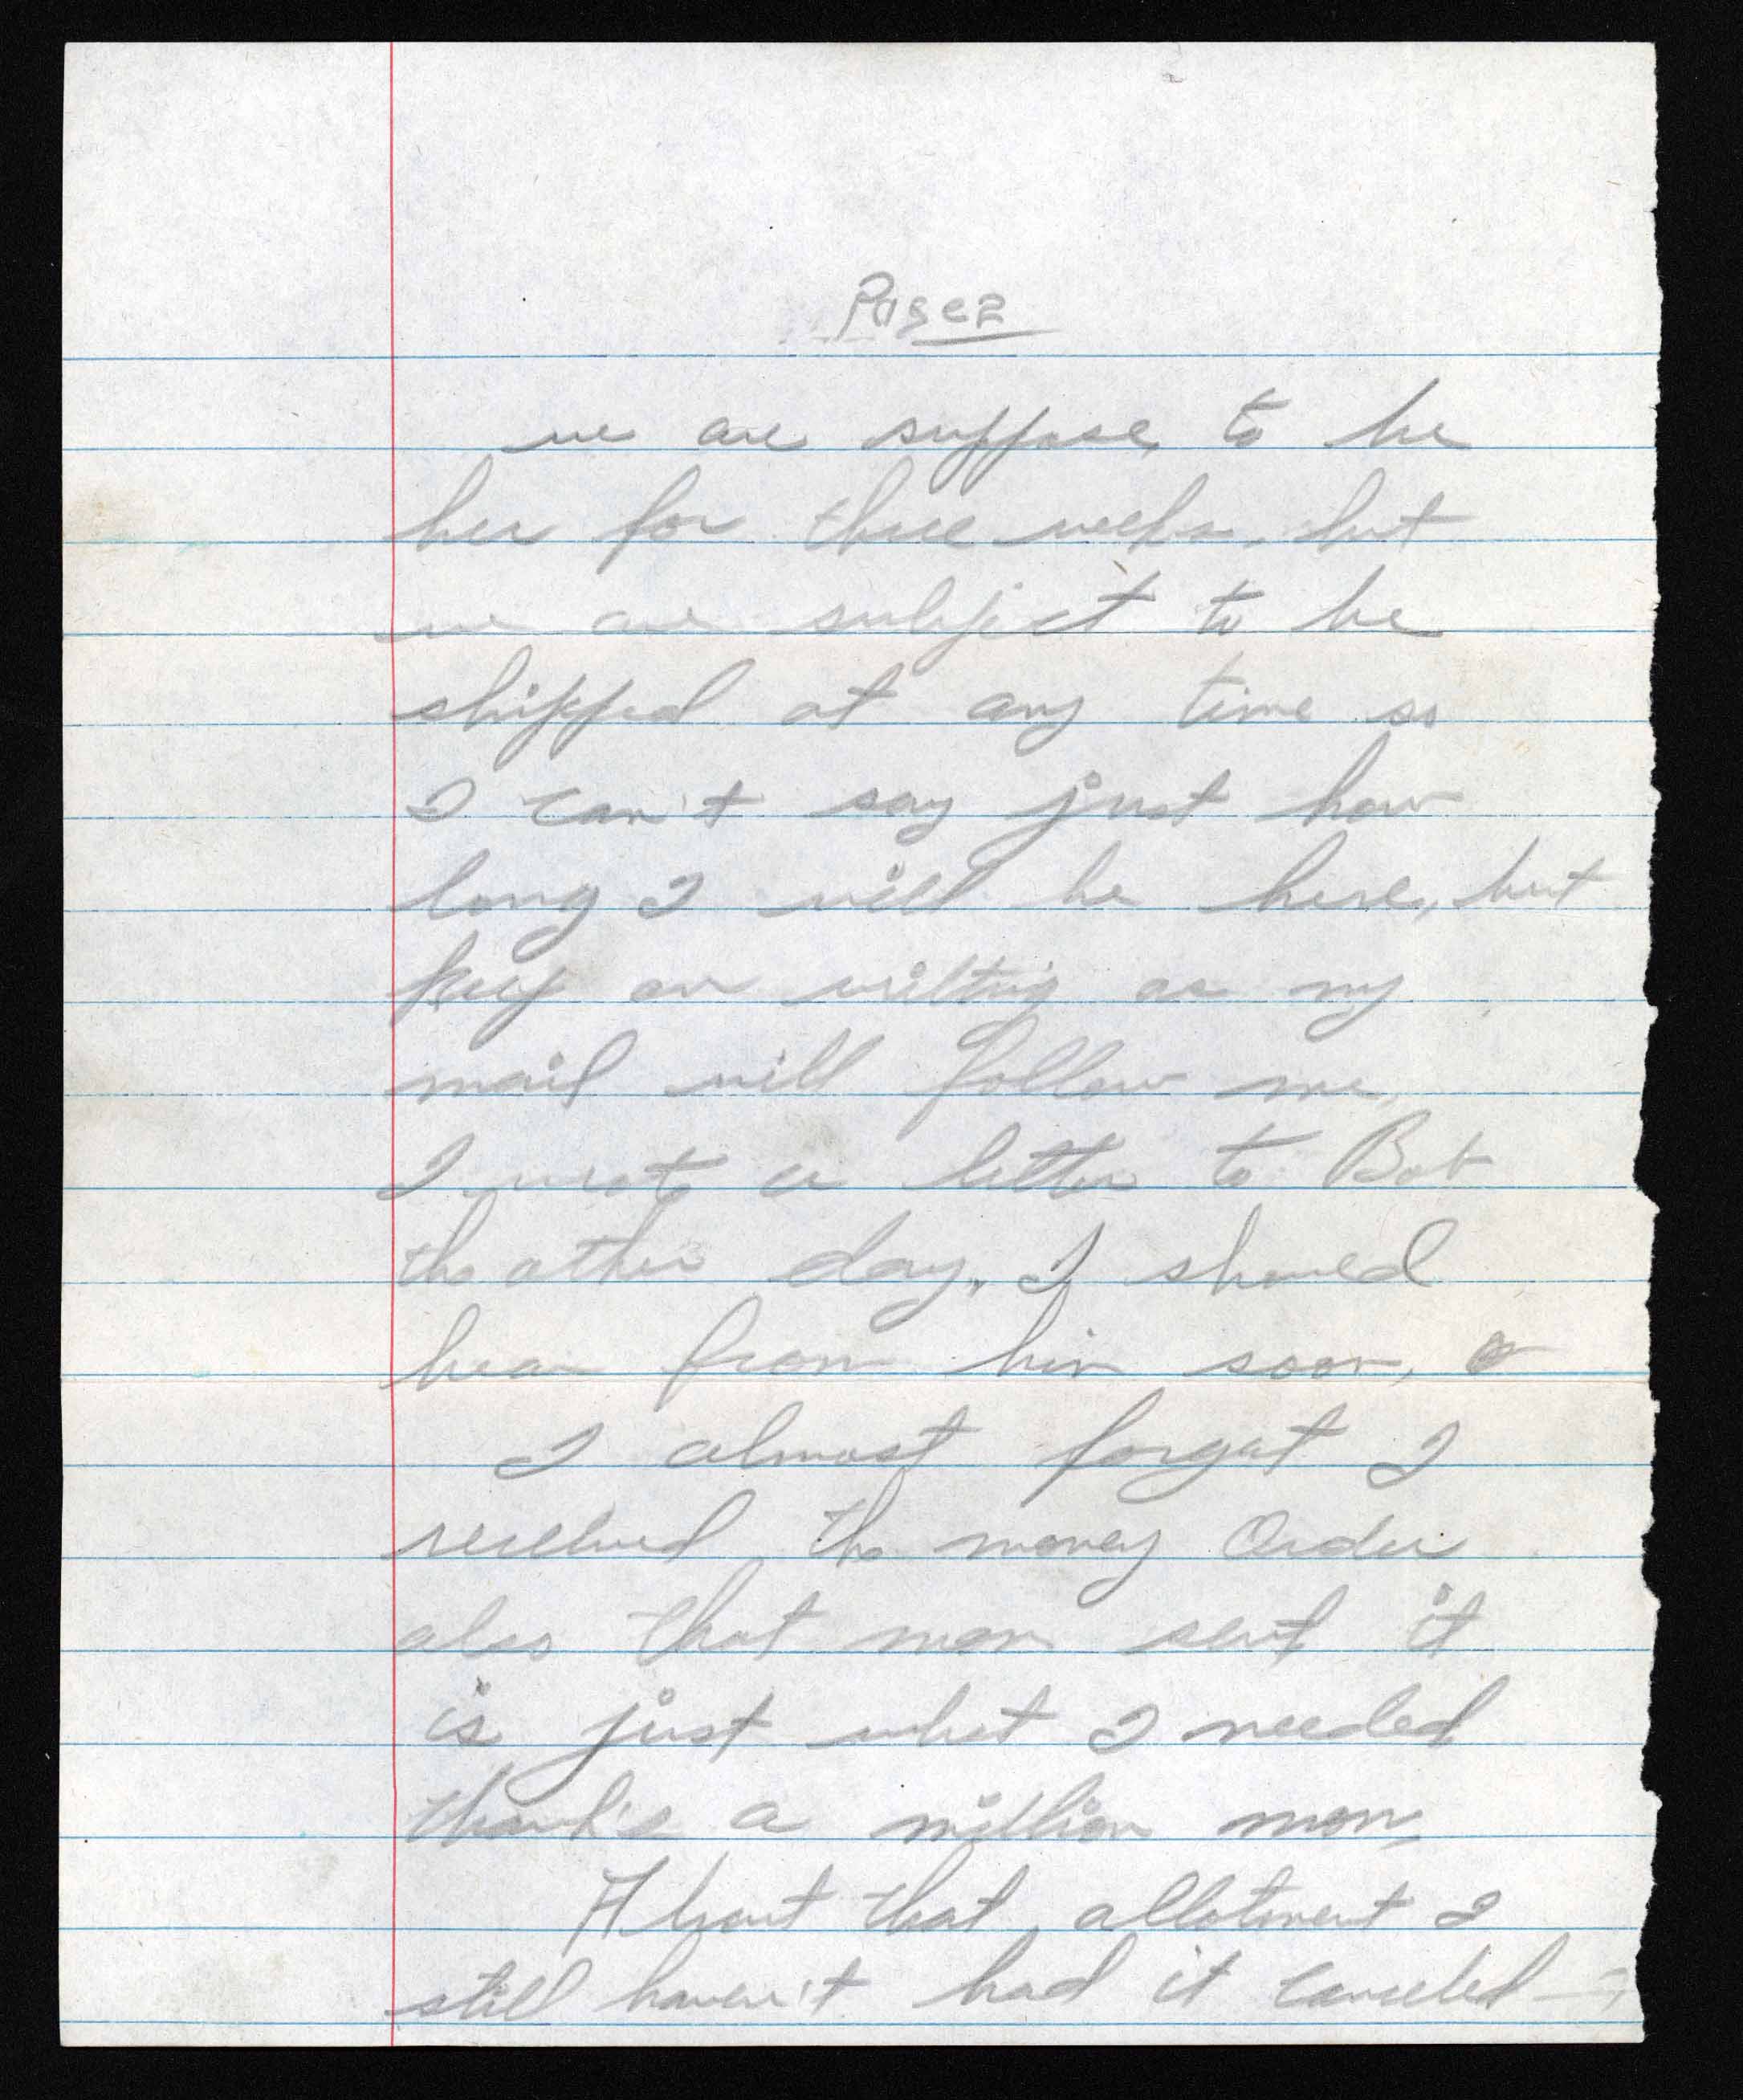 Page 2
we are suppose to be
her for three weeks, but
we are subject to be
shipped at any time so
I can't say just how
long I will be here, but
keep on writting as my
mail will follow me,
I wrote a letter to Bob
the other day. I should
hear from him soon,
I almost forgot I
received the money Order
also that mom sent it
is just what I needed
thank's a million mom,
About that allotment I
still haven't had it canceled